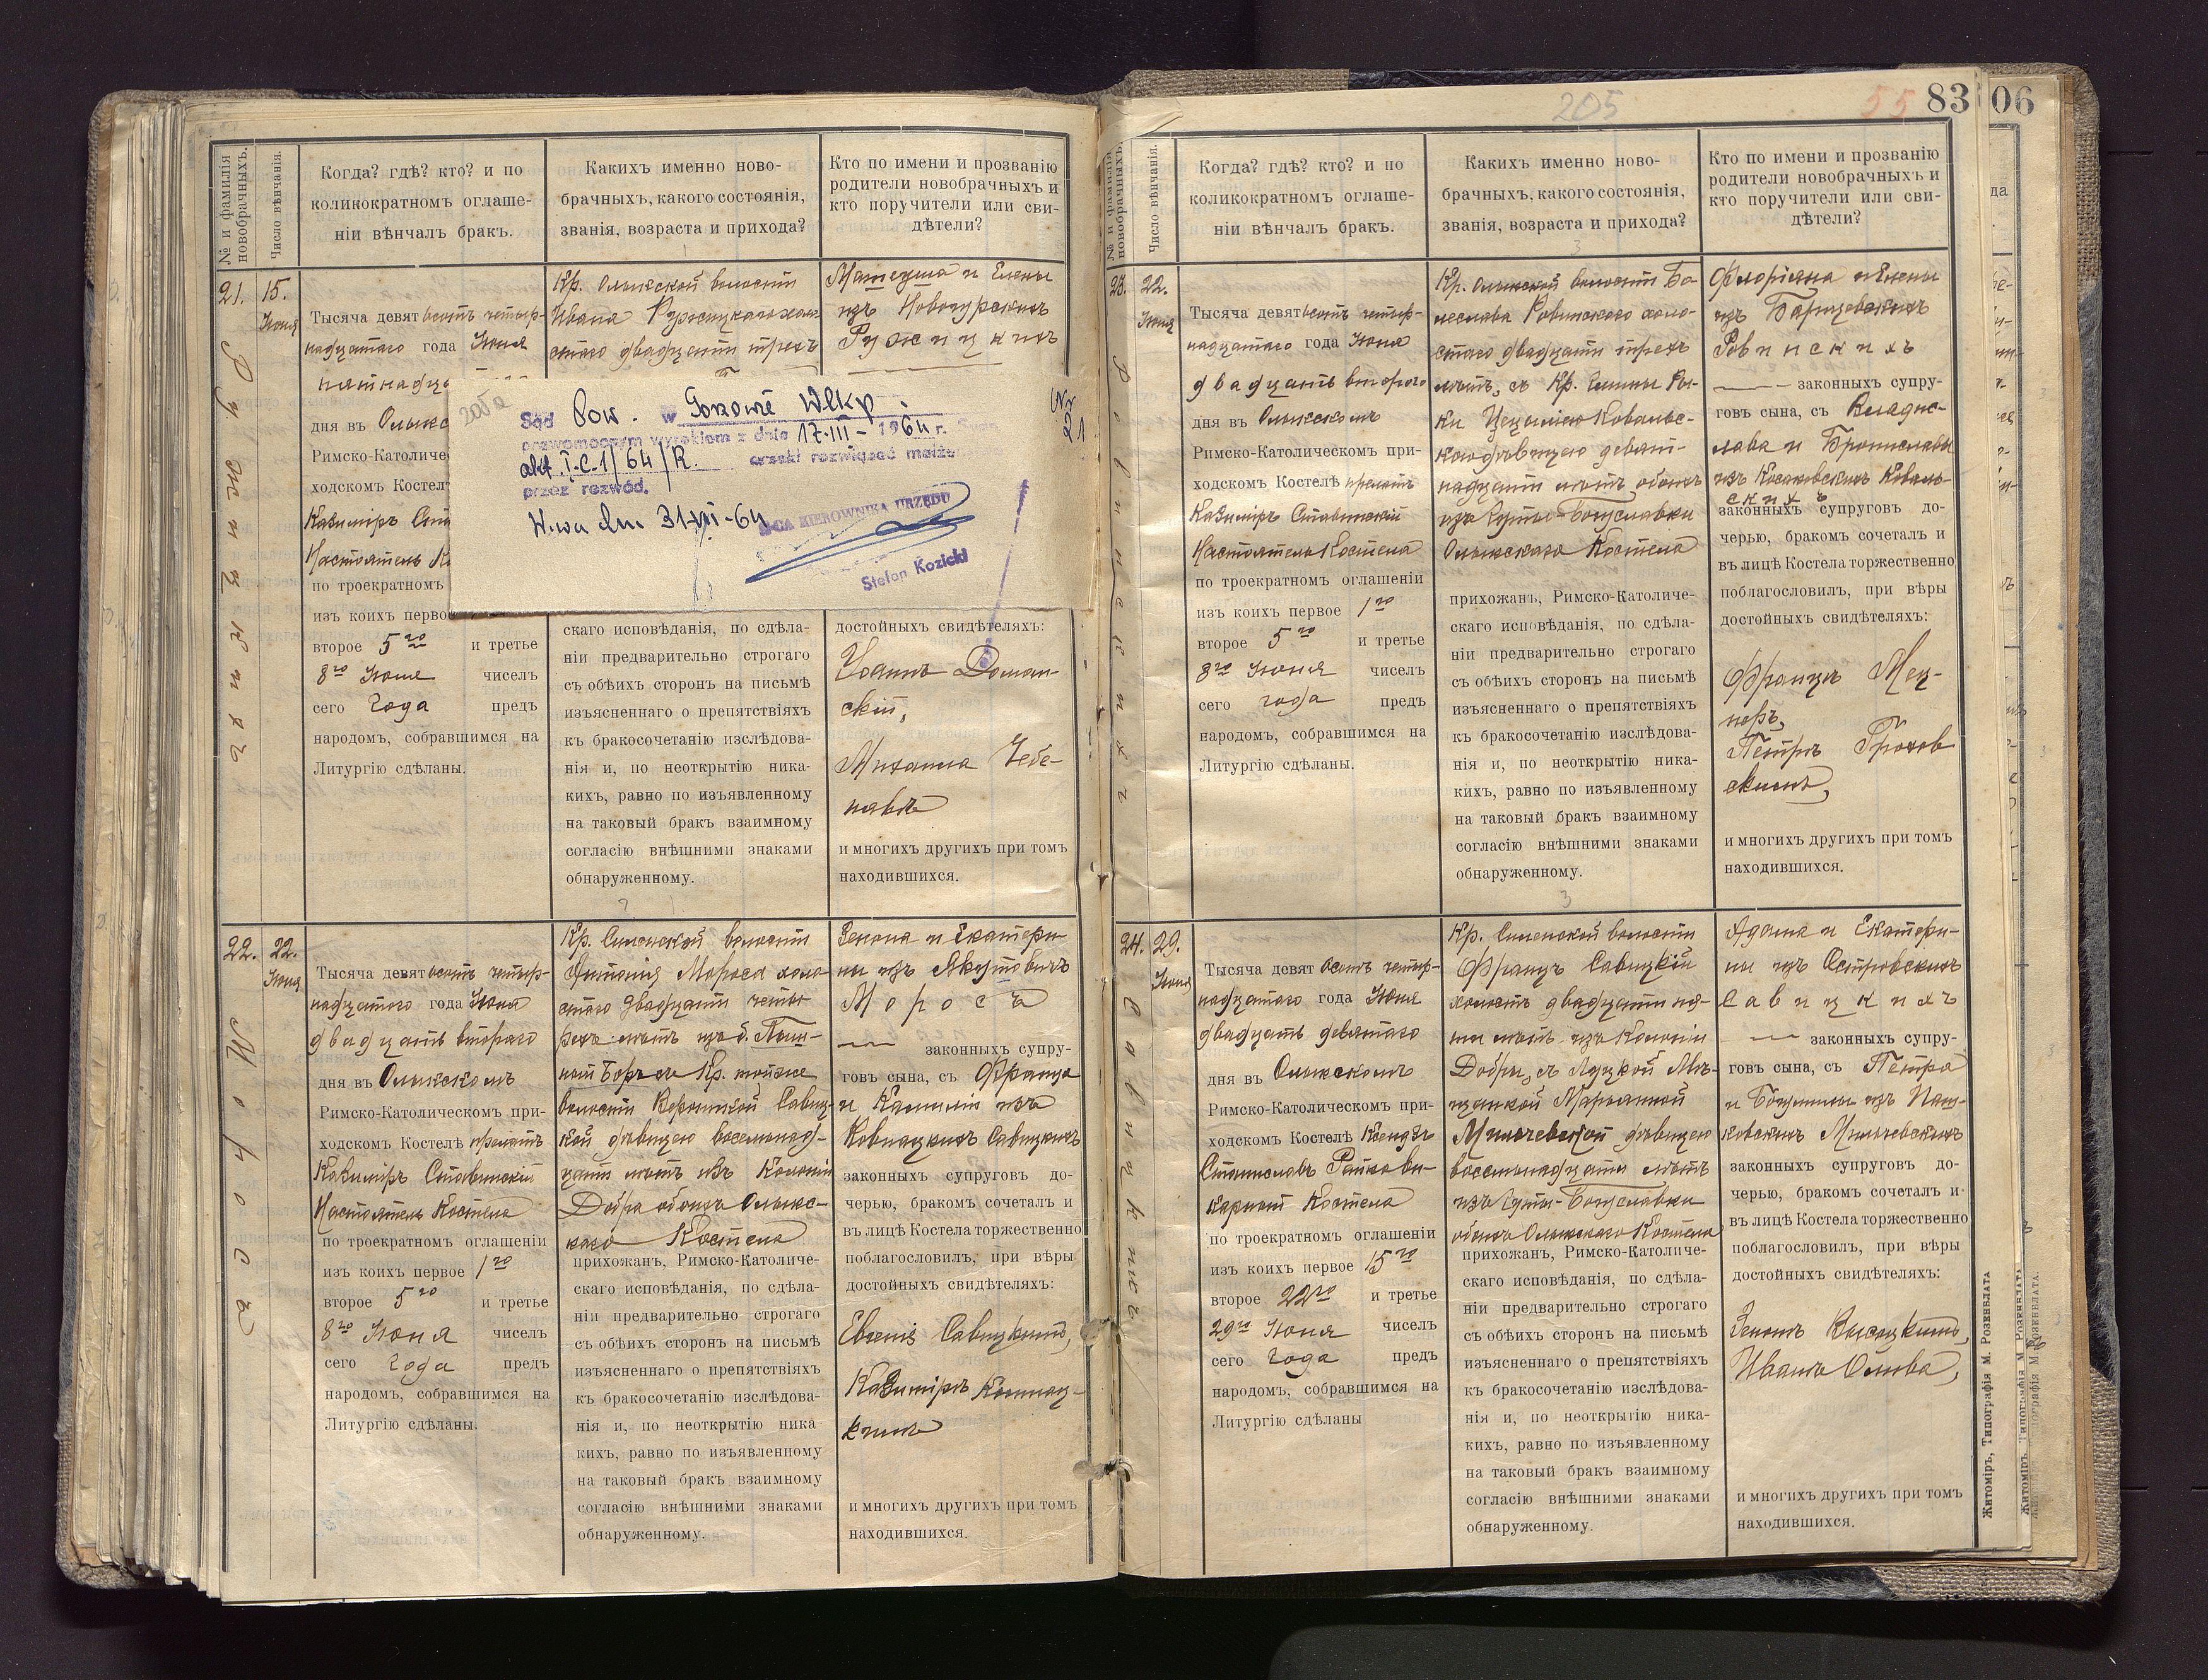 205
55
83
06
№ и фамилія новобрачныхъ.
Число вѣнчанія.
Когда? гдѣ? кто? и по
коликократномъ оглаше-
ніи вѣнчалъ бракъ.
Какихъ именно ново-
брачныхъ, какого состоянія,
званія, возраста и прихода?
Кто по имени и прозванію
родители новобрачныхъ и
кто поручители или сви-
дѣтели?
21.
15.
Іюня
Ружицкихъ
Тысяча девятьсотъ четыр-
надцатаго года Іюня
дня въ
Римско-Католиче
ходскомъ Костел
Казиміръ
Настоятель
по троекратномъ
изъ коихъ перво
второе 5го и третье
8го Іюня чиселъ
сего года предъ
народомъ, собравшимся на
Литургію сдѣланы.
Кр. Олыкской волости
Ивана Ружицкаго холо-
стаго двадцати трехъ
скаго исповѣданія, по сдѣла-
ніи предварительно строгаго
съ обѣихъ сторонъ на письмѣ
изъясненнаго о препятствіяхъ
къ бракосочетанію изслѣдова-
нія и, по неоткрытію ника-
кихъ, равно по изъявленному
на таковый бракъ взаимному
согласію внѣшними знаками
обнаруженному.
Матеуша и Елены
изъ
Ружицкихъ
достойныхъ свидѣтеляхъ:
Іоаннъ Доман-
скій,
Михаила
и многихъ другихъ при томъ
находившихся.
205a
Nr
21
Sąd Pow. w Gorzowie Wlkp.
prawomocnym wyrokiem z dnia 17-III-1964 r.
akt. I.C.1/64/R. orzekł rozwiązać małże
przez rozwód.
W-wa dn. 31-VII-64
Z-CA KIEROWNIKA URZĘDU
Stefan Kozicki
22.
22.
Іюня
Моросъ
Тысяча девятьсотъ четыр-
надцатаго года Іюня
двадцать втораго
дня въ Олыкскомъ
Римско-Католическомъ при-
ходскомъ Костелѣ прелатъ
Казиміръ Ставинскій
Настоятель Костела
по троекратномъ оглашеніи
изъ коихъ первое 1го
второе 5го и третье
8го Іюня чиселъ
сего года предъ
народомъ, собравшимся на
Литургію сдѣланы.
Кр. Силенской волости
Антонія Мороса холо-
стаго двадцати четы-
рехъ лѣтъ изъ
Боръ съ Кр. тойже
волости Савиц-
кой дѣвицею восемнад-
цати лѣтъ изъ Колоніи
Добра обоихъ Олыкс-
каго Костела
прихожанъ, Римско-Католиче-
скаго исповѣданія, по сдѣла-
ніи предварительно строгаго
съ обѣихъ сторонъ на письмѣ
изъясненнаго о препятствіяхъ
къ бракосочетанію изслѣдова-
нія и, по неоткрытію ника
кихъ, равно по изъявленному
на таковый бракъ взаимному
согласію внѣшними знаками
обнаруженному.
Зенона и Екатери-
ны изъ Якутовичъ
Моросъ
законныхъ супру-
говъ сына, съ Франца
и Камиліи изъ
Савицкихъ
законныхъ супруговъ до-
черью, бракомъ сочеталъ и
въ лицѣ Костела торжественно
поблагословилъ, при вѣры
достойныхъ свидѣтеляхъ:
Евгенія Савицкимъ,
Казиміръ
и многихъ другихъ при томъ
находившихся.
№ и фамилія новобрачныхъ.
Число вѣнчанія.
Когда? гдѣ? кто? и по
коликократномъ оглаше-
ніи вѣнчалъ бракъ.
Какихъ именно ново-
брачныхъ, какого состоянія,
званія, возраста и прихода?
Кто по имени и прозванію
родители новобрачныхъ и
кто поручители или сви-
дѣтели?
23.
22.
Іюня
Ровинскихъ
Тысяча девятьсотъ четыр-
надцатаго года Іюня
двадцать втораго
дня въ Олыкскомъ
Римско-Католическомъ при-
ходскомъ Костелѣ прелатъ
Казиміръ Ставинскій
Настоятель Костела
по троекратномъ оглашеніи
изъ коихъ первое 1го
второе 5го и третье
8го Іюня чиселъ
сего года предъ
народомъ, собравшимся на
Литургію сдѣланы.
Кр. Олыкской волости Бо-
леслава Ровинскаго холо-
стаго двадцати трехъ
лѣтъ, съ Кр. Гмины
Цецыліею Ковальс-
кою дѣвицею девят-
надцати лѣтъ обоихъ
изъ Гуты-Богуславки
Олыкскаго Костела
прихожанъ, Римско-Католиче-
скаго исповѣданія, по сдѣла-
ніи предварительно строгаго
съ обѣихъ сторонъ на письмѣ
изъясненнаго о препятствіяхъ
къ бракосочетанію изслѣдова-
нія и, по неоткрытію ника-
кихъ, равно по изъявленному
на таковый бракъ взаимному
согласію внѣшними знаками
обнаруженному.
Флоріяна и Елены
изъ Барщевскихъ
Ровинскихъ
законныхъ супру-
говъ сына, съ Владис-
лава и Брониславы
изъ Косаковскихъ Коваль-
скихъ
законныхъ супруговъ до-
черью, бракомъ сочеталъ и
въ лицѣ Костела торжественно
поблагословилъ, при вѣры
достойныхъ свидѣтеляхъ:
Францъ Мец-
неръ,
Петръ Грохов
скимъ,
и многихъ другихъ при томъ
находившихся.
24.
29.
Іюня
Савицкихъ
Тысяча девятьсотъ четыр-
надцатаго года Іюня
двадцать девятаго
дня въ Олыкскомъ
Римско-Католическомъ при-
ходскомъ Костелѣ Ксендзъ
Станиславъ
Костела
по троекратномъ оглашеніи
изъ коихъ первое 15го
второе 22го и третье
29го Іюня чиселъ
сего года предъ
народомъ, собравшимся на
Литургію сдѣланы
Кр. Силенской волости
Францъ Савицкій
холостъ двадцати пя-
ти лѣтъ изъ Колоніи
Добры, съ Луцкой Мѣ-
щанкой Марьянной
Мильчевской дѣвицею
восемнадцати лѣтъ
изъ Гуты-Богуславки
обоихъ Олыкскаго Костела
прихожанъ, Римско-Католиче-
скаго исповѣданія, по сдѣла-
ніи предварительно строгаго
съ обѣихъ сторонъ на письмѣ
изъясненнаго о препятствіяхъ
къ бракосочетанію изслѣдова-
нія и, по неоткрытію ника-
кихъ, равно по изъявленному
на таковый бракъ взаимному
согласію внѣшними знаками
обнаруженному.
Адама и Екатери-
ны изъ Островскихъ
Савицкихъ
законныхъ супру-
говъ сына, съ Петра
и изъ Паш-
ковскихъ Мильчевскихъ
законныхъ супруговъ до-
черью, бракомъ сочеталъ и
въ лицѣ Костела торжественно
поблагословилъ, при вѣры
достойныхъ свидѣтеляхъ:
Зенонъ Высоцкимъ,
Иванъ Олива,
и многихъ другихъ при томъ
находившихся.
Житоміръ, Типографія М. Розенблата